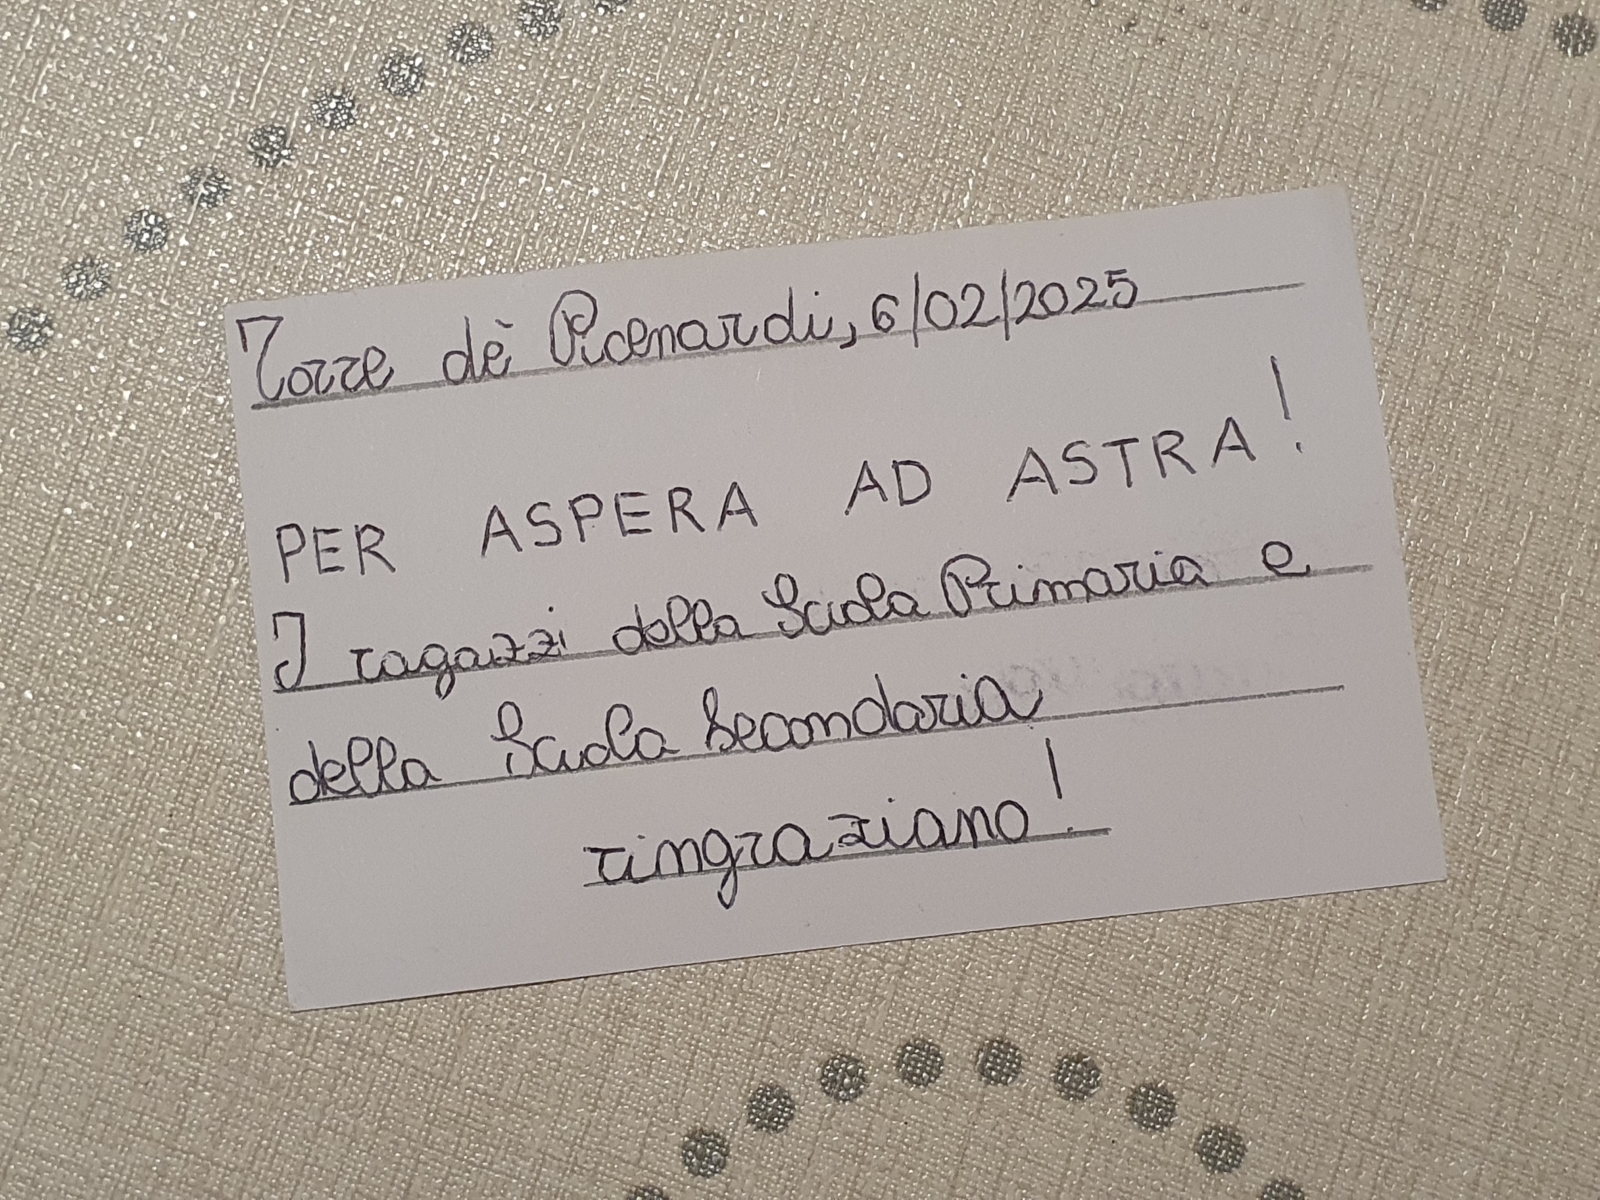 Torre dè Picenardi, 6/02/2025
PER ASPERA AD ASTRA!
I ragazzi della Scuola Primaria e
della Scuola Secondaria
ringraziano!